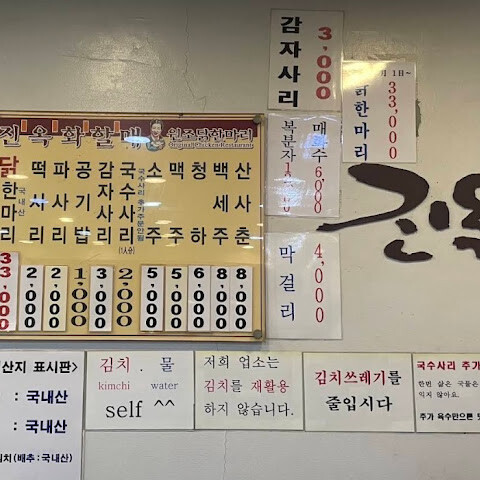 진옥화할매 원조닭한마리
Original Chicken Restaurant
닭한마리 국내산 33,000
떡사리 2,000
파사리 2,000
공기밥 1,000
감자사리 3,000
국수사리 (1인분) 2,000
소주 5,000
맥주 5,000
청하 6,000
백세주 8,000
산사춘 8,000
감자사리 3,000
월 1일~
닭한마리 33,000
매화수 6,000
복분자
막걸리 4,000
진옥
산지 표시판>
: 국내산
: 국내산
(배추:국내산)
김치 . 물
kimchi water
self ^^
저희 업소는
김치를 재활용
하지 않습니다.
김치쓰레기를
줄입시다
국수사리 추가
한번 삶은 국물은
익지 않아요.
추가 육수만으론